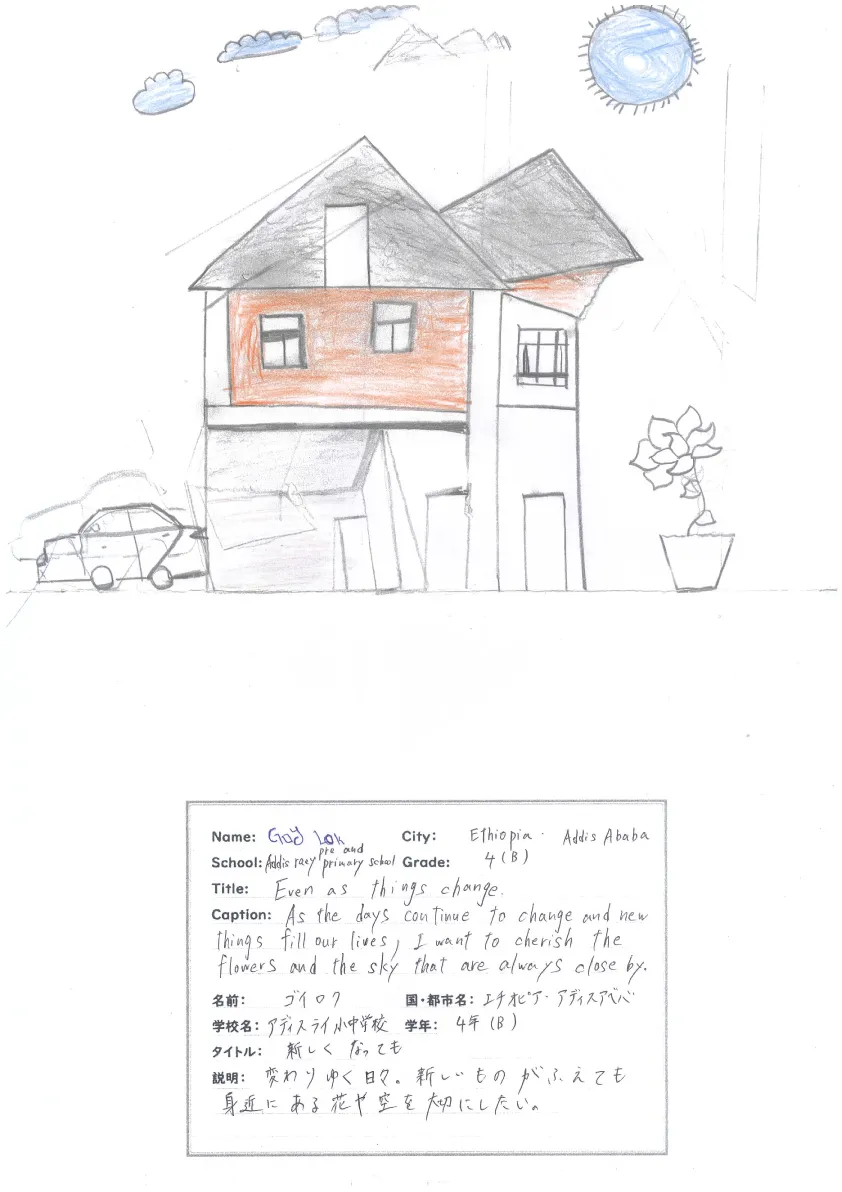 Name: Goy Lok City: Ethiopia · Addis Ababa
School: Addis raey pre and primary school Grade: 4 (B)
Title: Even as things change.
Caption: As the days continue to change and new
things fill our lives, I want to cherish the
flowers and the sky that are always close by.
名前: ゴイロク 国・都市名: エチオピア・アディスアベバ
学校名: アディスライ小中学校 学年: 4年 (B)
タイトル: 新しくなっても
説明: 変わりゆく日々。新しいものがふえても
身近にある花や空を大切にしたい。